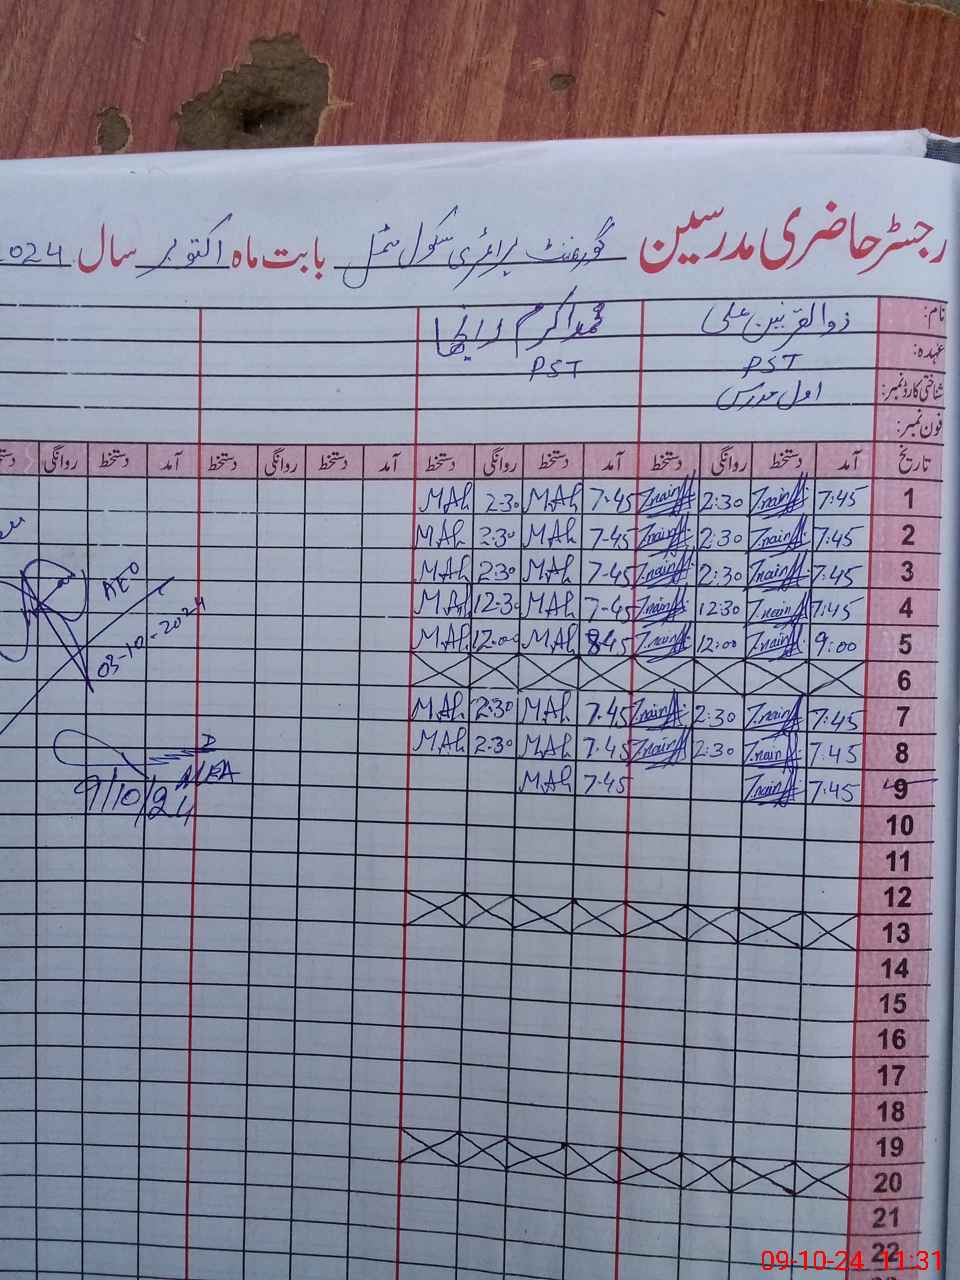 رجسٹر حاضری مدرسین گورنمنٹ پرائمری سکول بابت ماہ اکتوبر سال 2024
نام: ذوالقرنین علی محمد اکرم رانجھا
عہدہ: PST PST
شناختی کارڈ نمبر: اول مدرس
فون نمبر:
تاریخ آمد دستخط روانگی دستخط آمد دستخط روانگی دستخط آمد دستخط روانگی دستخط آمد دستخط روانگی
1 7:45 Znain 2:30 Znain 7-45 MAh 2:30 MAh
2 7:45 Znain 2:30 Znain 7-45 MAh 2:30 MAh
3 7:45 Znain 2:30 Znain 7-45 MAh 2:30 MAh
4 7:45 Znain 12:30 Znain 7-45 MAh 12:30 MAh
5 9:00 Znain 12:00 Znain 8:45 MAh 12:00 MAh
6
7 7:45 Znain 2:30 Znain 7.45 MAh 2:30 MAh
8 7:45 Znain 2:30 Znain 7.45 MAh 2:30 MAh
9 7:45 Znain 7-45 MAh
10
11
12
13
14
15
16
17
18
19
20
21
22
AEO
03-10-2024
MEA
9/10/24
09-10-24 11:31